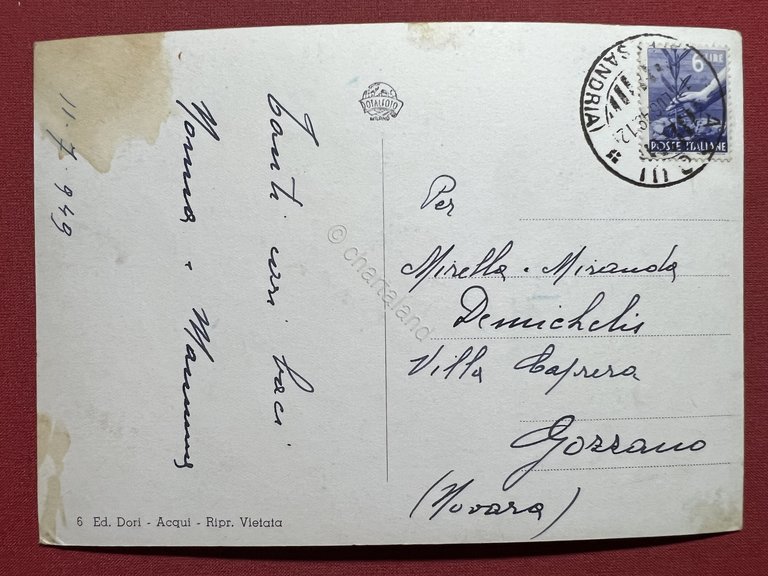 11-7-949
Tanti cari baci
Nonna e Mamma
TOTALFOTO
MILANO
6 LIRE
POSTE ITALIANE
Per
Mirella e Miranda
Demichelis
Villa Caprera
Gozzano
(Novara)
6 Ed. Dori - Acqui - Ripr. Vietata
© chartaland